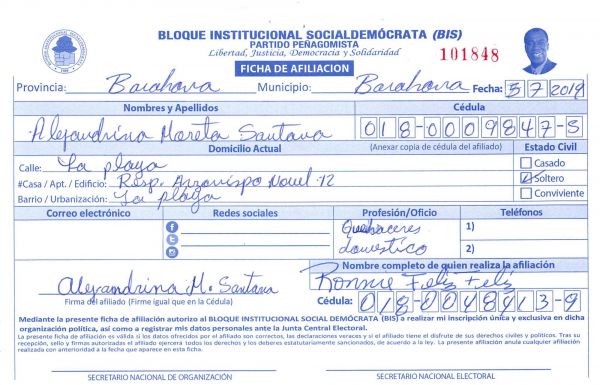 BLOQUE INSTITUCIONAL SOCIALDEMÓCRATA (BIS)
PARTIDO PEÑAGOMISTA
Libertad, Justicia, Democracia y Solidaridad
101848
FICHA DE AFILIACION
Provincia: Barahona Municipio: Barahona Fecha: 5/7/2019
Nombres y Apellidos Cédula
Alejandrina Moreta Santana 018-0009847-5
Domicilio Actual (Anexar copia de cédula del afiliado) Estado Civil
Calle: La playa Casado
#Casa / Apt. / Edificio: Resp. Arzovispo Nouel 12 Soltero
Barrio / Urbanización: La playa Conviviente
Correo electrónico Redes sociales Profesión/Oficio Teléfonos
Quehaceres 1)
domestico 2)
Nombre completo de quien realiza la afiliación
Alejandrina M. Santana Ronnie Feliz Feliz
Firma del afiliado (Firme igual que en la Cédula) Cédula: 018-0048413-9
Mediante la presente ficha de afiliación autorizo al BLOQUE INSTITUCIONAL SOCIAL DEMÓCRATA (BIS) a realizar mi inscripción única y exclusiva en dicha
organización política, así como a registrar mis datos personales ante la Junta Central Electoral.
La presente ficha de afiliación es válida si los datos ofrecidos por el afiliado son correctos, las declaraciones veraces y si el afiliado tiene el disfrute de sus derechos civiles y políticos. Tras su
recepción, sello y firmas autorizadas el afiliado ejercerá todos los derechos y los deberes estatutariamente sancionados, de acuerdo a la ley. La presente afiliación anula cualquier afiliación
realizada con anterioridad a la fecha que aparece en esta ficha.
SECRETARIO NACIONAL DE ORGANIZACIÓN SECRETARIO NACIONAL ELECTORAL